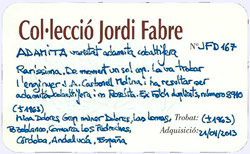 Col·lecció Jordi Fabre
ADAMITA varietat adamita cobaltífera
Nº JFD167
Raríssima. De moment un sol ap. La va trobar
l'enginyer J. A. Carbonell Molina i ha resultat ser
adamita cobaltífera in Rosalita. Ex Folch duplicats, número 8940
(±1963)
Mina Dolores, Grup miner Dolores, Las Lomas,
Pozoblanco, Comarca Los Pedroches,
Córdoba, Andalucía, España
Trobat: (±1963)
Adquisició: 21/04/2013